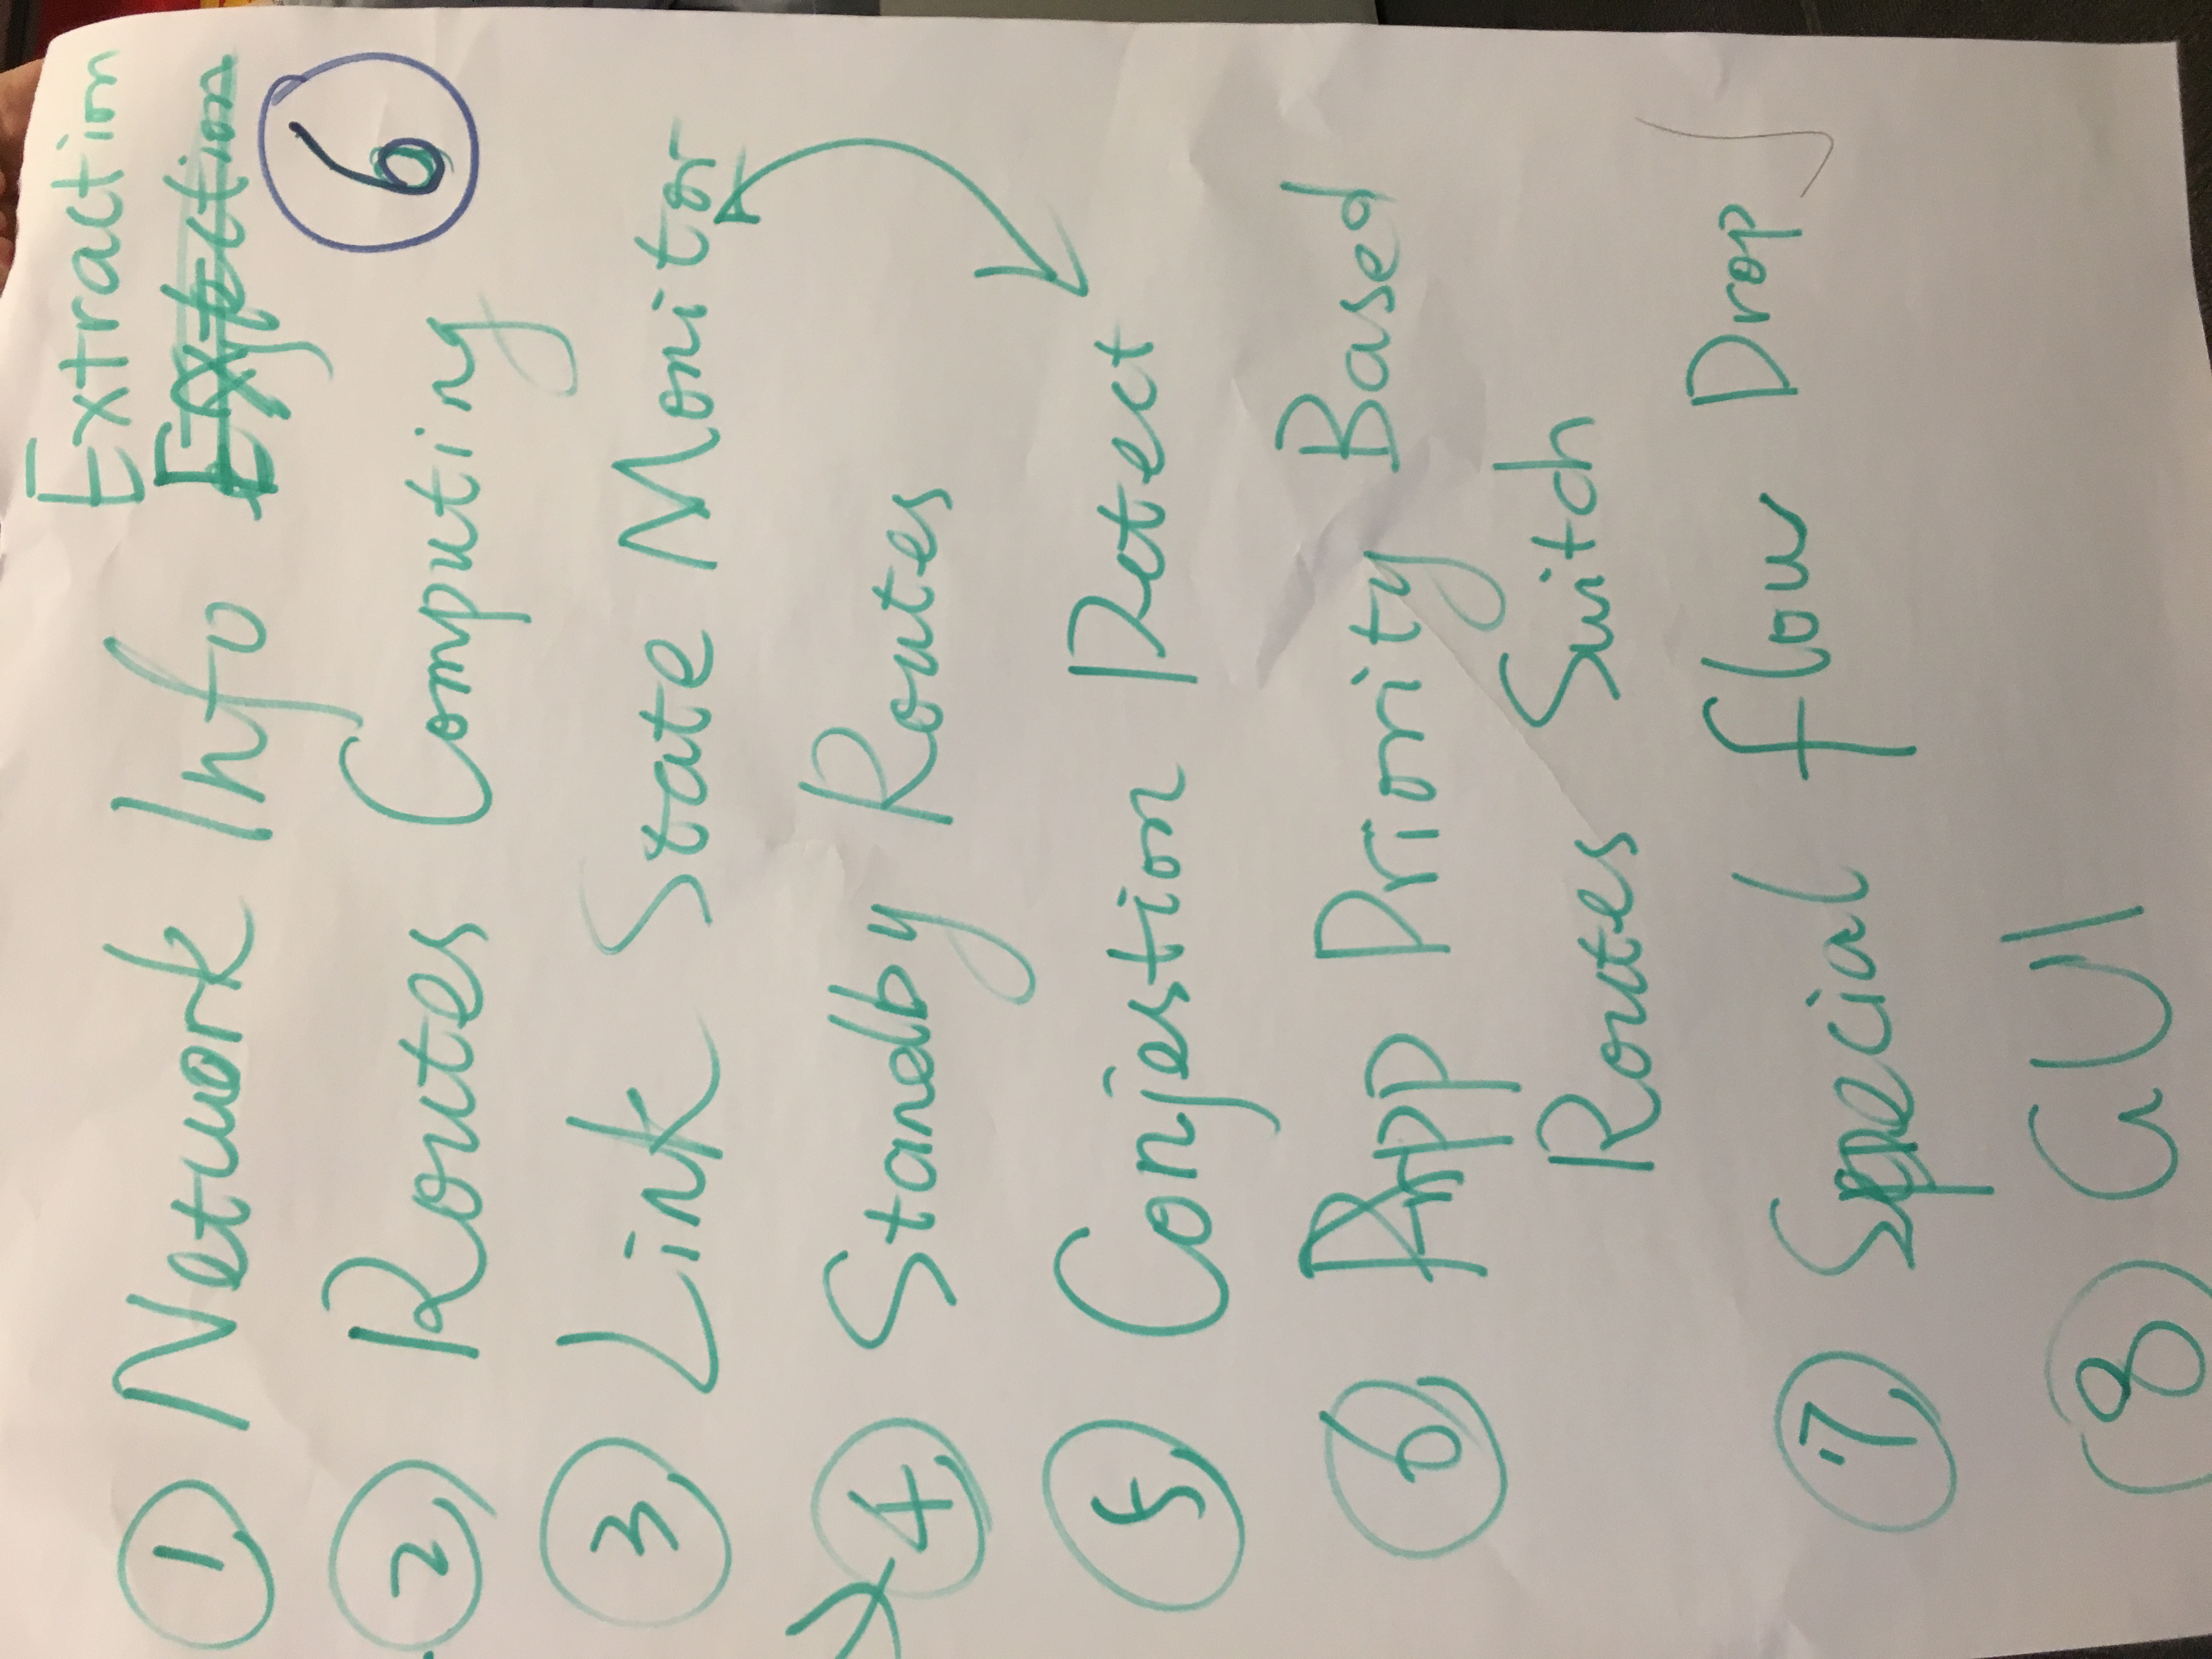 Extraction
1, Network Info
6
2, Routes Computing
3, Link State Monitor
4, Standby Routes
5, Conjestion Detect
6, App Priority Based
Routes Switch
7, Special flow Drop
8 GUI